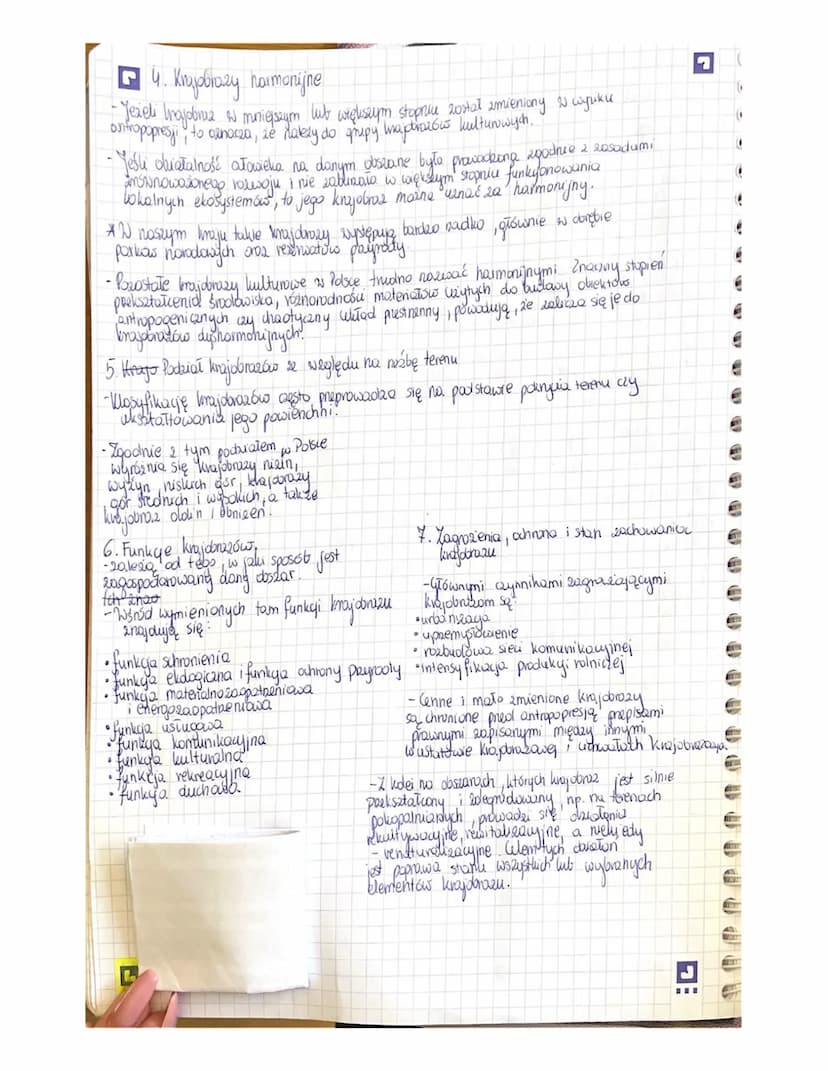 4. Krajobrazy harmonijne
- Jeżeli krajobraz w mniejszym lub większym stopniu został zmieniony w wyniku
antropopresji, to oznacza, że należy do grupy krajobrazów kulturowych.
- Jeśli działalność człowieka na danym obszarze była prowadzona zgodnie z zasadami
zrównoważonego rozwoju i nie zaburzała w większym stopniu funkcjonowania
lokalnych ekosystemów, to jego krajobraz można uznać za harmonijny.
* W naszym kraju takie krajobrazy występują bardzo rzadko, głównie w obrębie
parków narodowych oraz rezerwatów przyrody.
- Pozostałe krajobrazy kulturowe w Polsce trudno nazwać harmonijnymi. Znaczny stopień
przekształcenia środowiska, różnorodności materiałów użytych do budowy obiektów
antropogenicznych czy chaotyczny układ przestrzenny, powodują, że zalicza się je do
krajobrazów dysharmonijnych.
5. Krajo Podział krajobrazów ze względu na rzeźbę terenu
- Klasyfikację krajobrazów często przeprowadza się na podstawie pokrycia terenu czy
ukształtowania jego powierzchni.
- Zgodnie z tym podziałem w Polsce
wyróżnia się krajobrazy nizin,
wyżyn, niskich gór, krajobrazy
gór średnich i wysokich, a także
krajobraz dolin i obniżeń.
6. Funkcje krajobrazów
- zależą od tego, w jaki sposób jest
zagospodarowany dany obszar.
- Wśród wymienionych tam funkcji krajobrazu
znajdują się:
• funkcja schronienia
• funkcja ekologiczna i funkcja ochrony przyrody
• funkcja materiałnozaopatrzeniowa
i energozaopatrzeniowa
• funkcja usługowa
• funkcja komunikacyjna
• funkcja kulturalna
• funkcja rekreacyjna
• funkcja duchowa
7. Zagrożenia, ochrona i stan zachowania
krajobrazu
- Głównymi czynnikami zagrażającymi
krajobrazom są:
• urbanizacja
• uprzemysłowienie
• rozbudowa sieci komunikacyjnej
• intensyfikacja produkcji rolniczej
- Cenne i mało zmienione krajobrazy
są chronione przed antropopresją przepisami
prawnymi zapisanymi między innymi
w ustawie krajobrazowej i uchwałach krajobrazowych
- Z kolei na obszarach, których krajobraz jest silnie
przekształcony i zdegradowany, np. na terenach
pokopalnianych, prowadzi się działania
rekultywacyjne, rewitalizacyjne, a niekiedy
- renaturalizacyjne. Celem tych działań
jest poprawa stanu wszystkich lub wybranych
elementów krajobrazu.